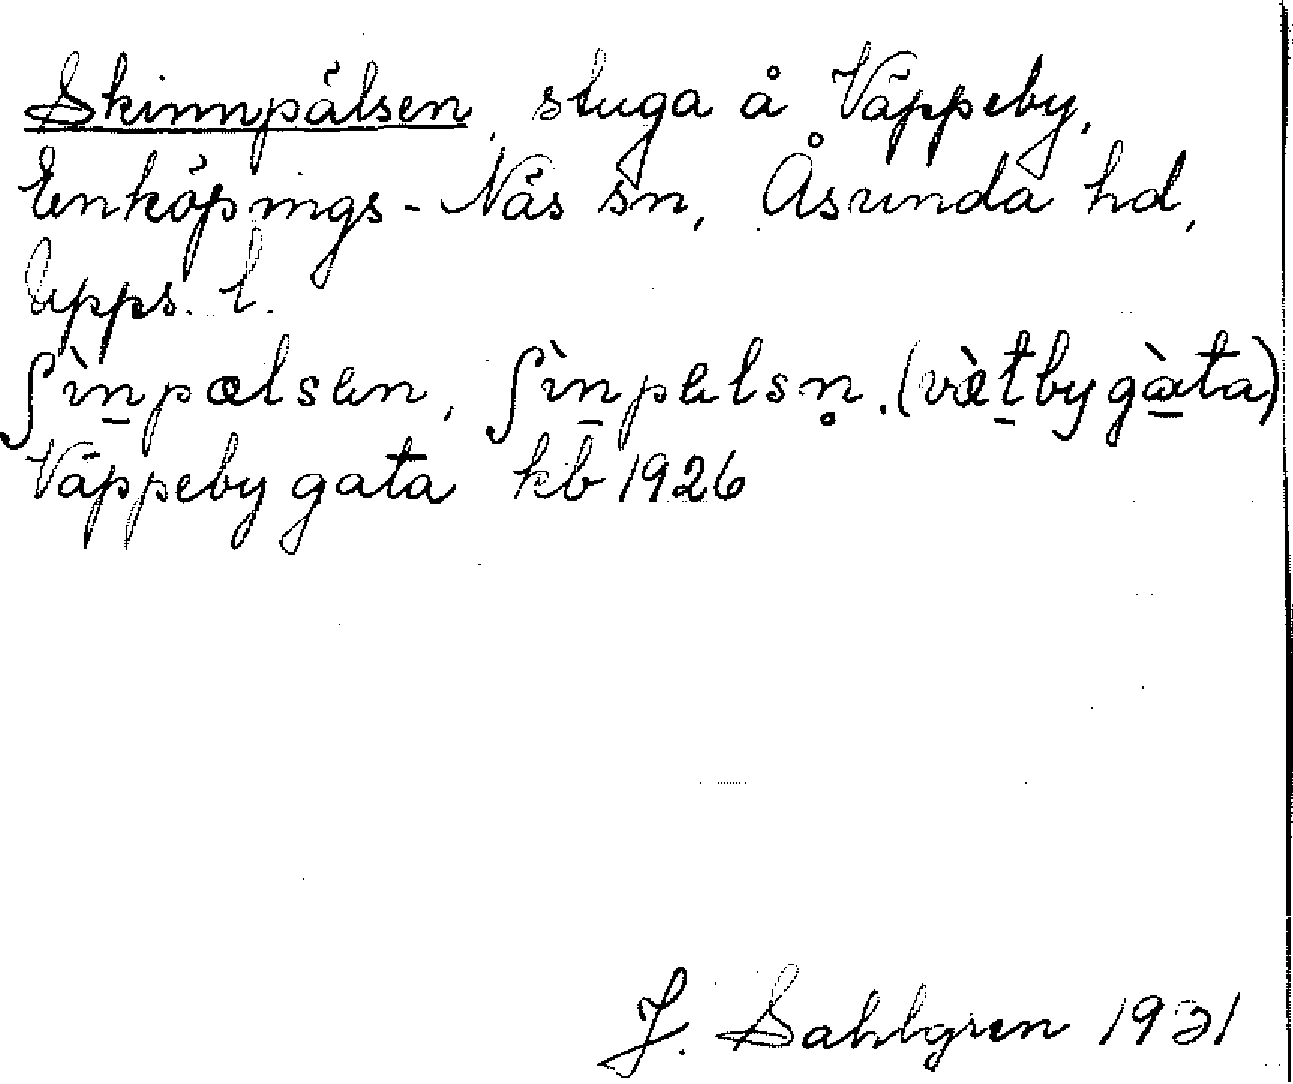 Skinnpälsen, stuga å Väppeby,
Enköpings-Näs sn, Åsunda hd,
Upps. l.
ʃìn̠pælsen, ʃìn̠pelsn̥. (væ̀t̠by gà̠ta)
Väppeby gata kb 1926
J. Sahlgren 1931